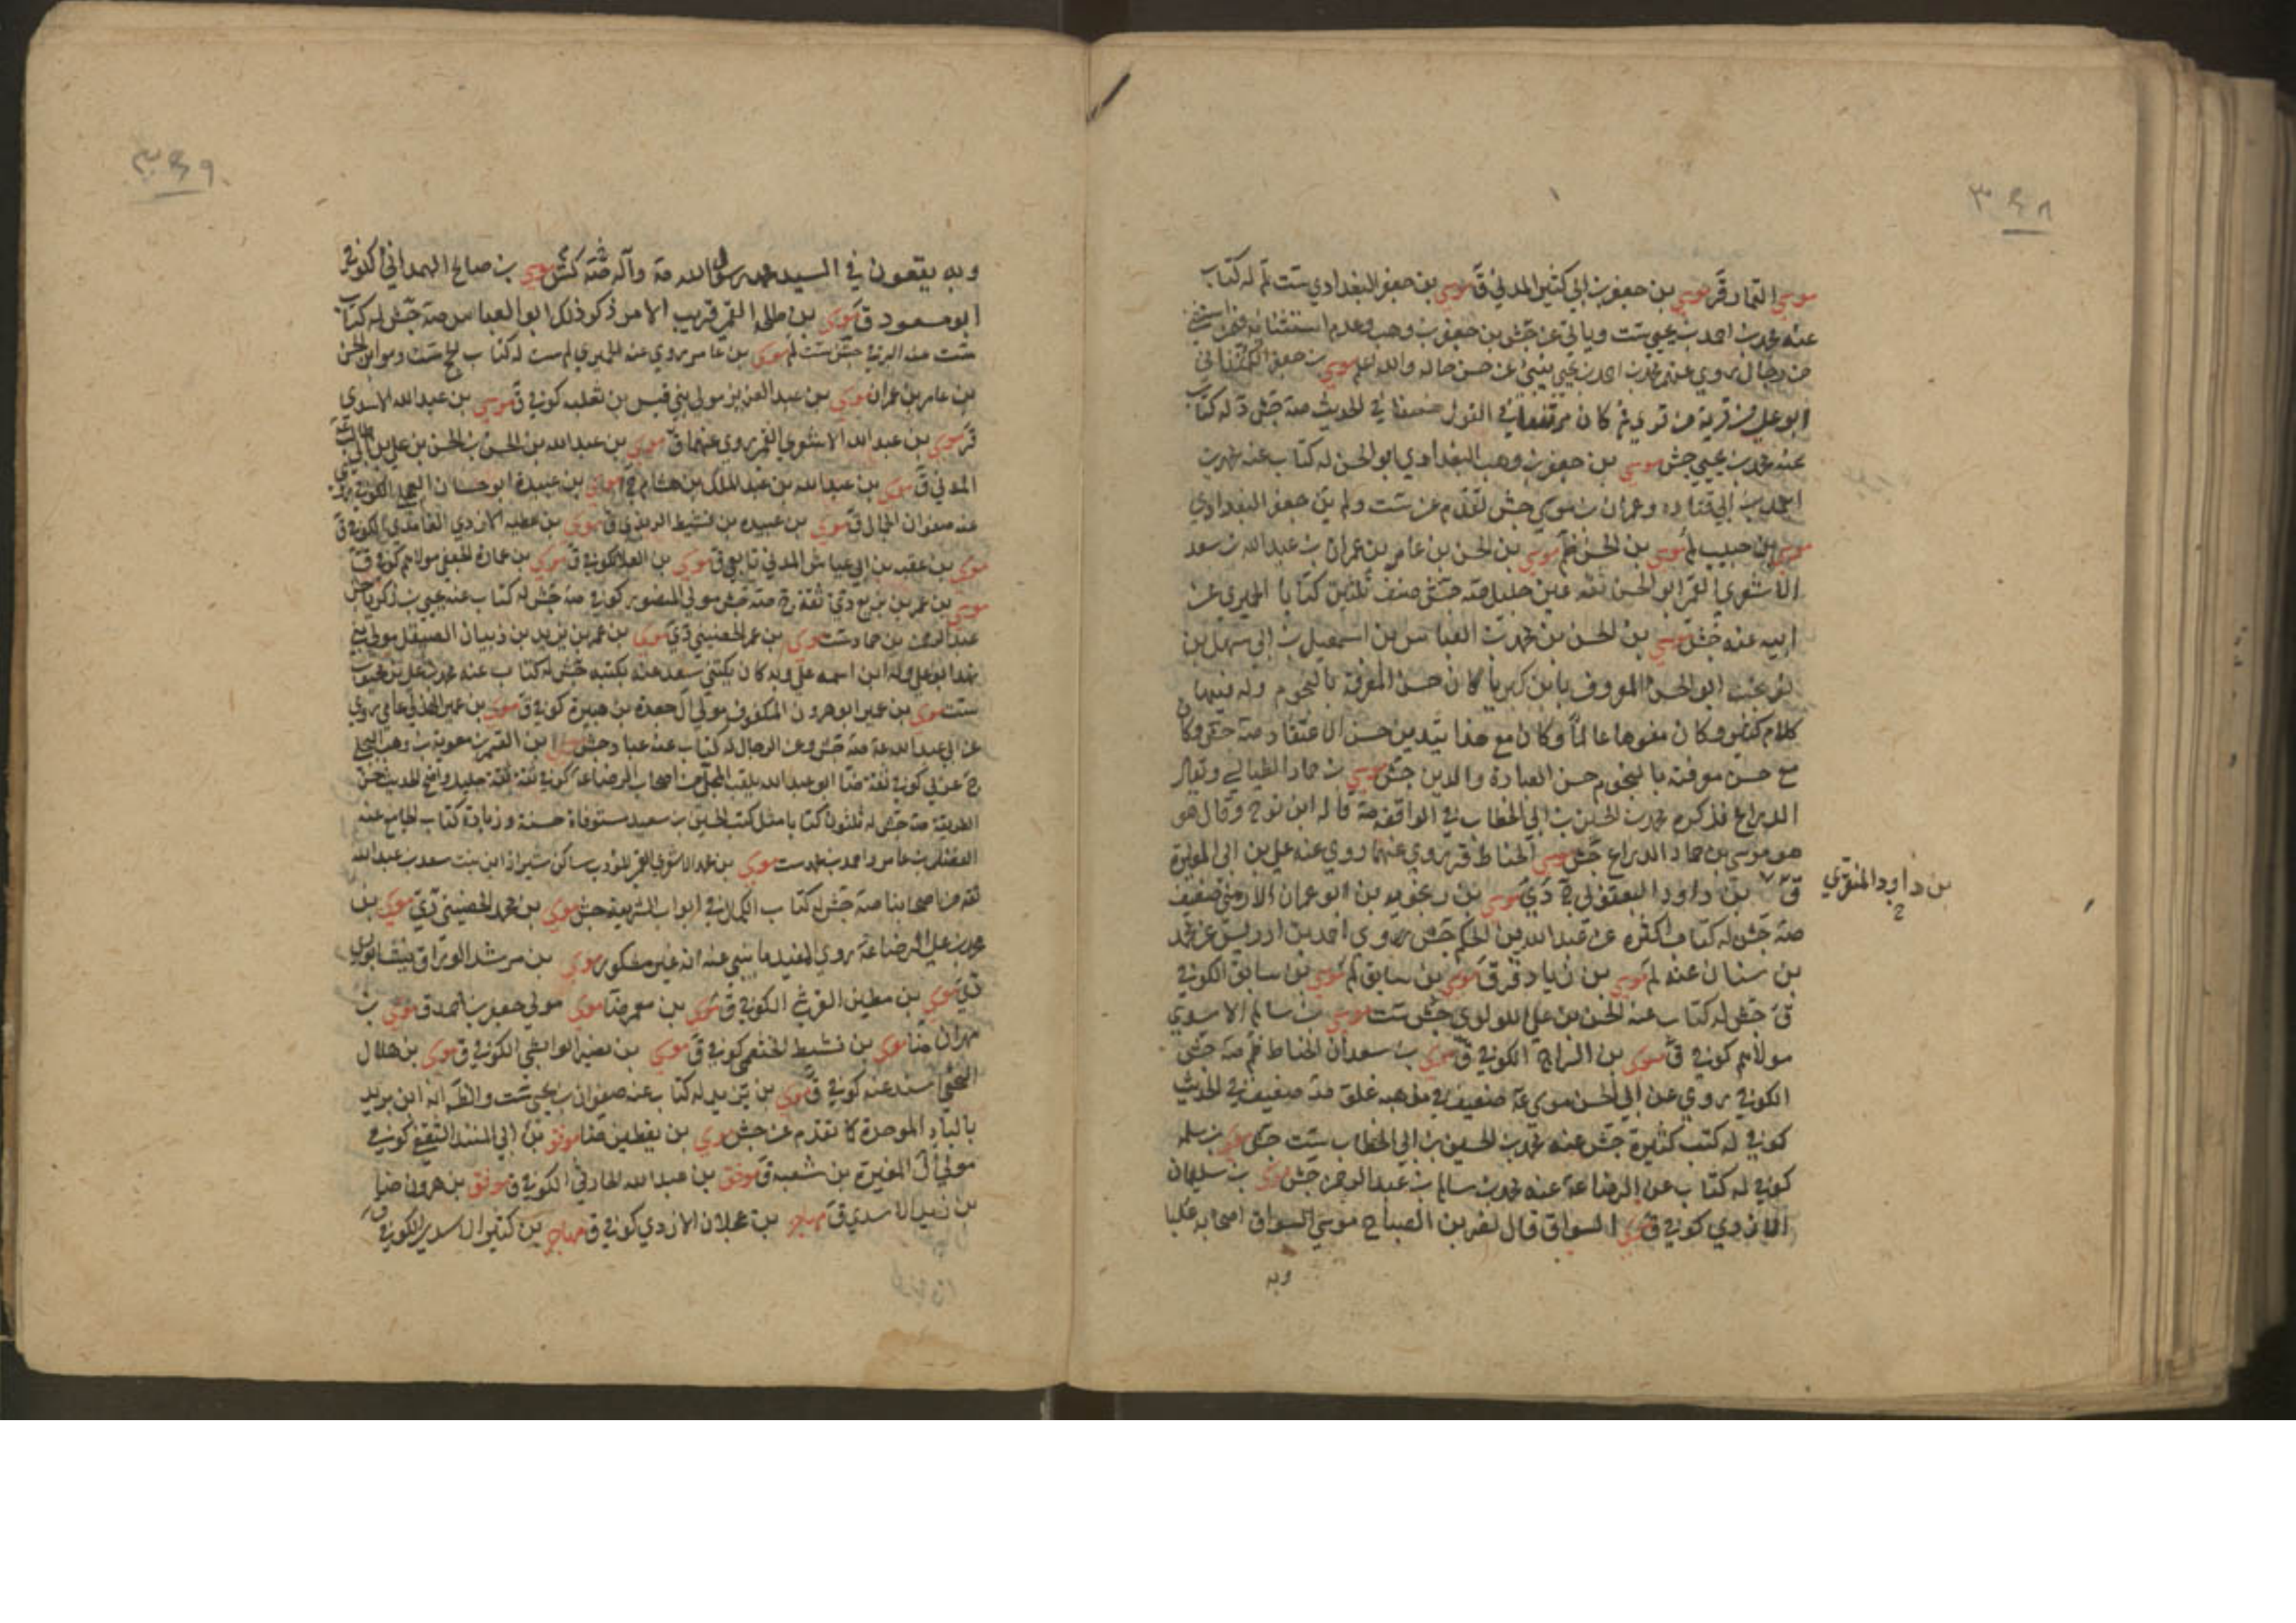 ٣٤٨
موسى التمار قر موسى بن جعفر بن ابي كثير المدني ق موسى بن جعفر البغدادي ست لم له كتاب
عنه محمد بن احمد بن يحيى ست وياتي عن جش بن جعفر بن وهب وعدم استثنائه
من رجال يروي عنهم محمد بن احمد بن يحيى ينبئ عن حسن حاله والله اعلم موسى بن جعفر الكمنذاني
ابو علي من قرية من قرى قم كان مرتفعا في القول ضعيفا في الحديث صه جش له كتاب
عنه محمد بن يحيى جش موسى بن جعفر بن وهب البغدادي ابو الحسن له كتاب عنه محمد بن
احمد بن ابي قتاده وعمران بن موسى جش تقدم عن ست ولم بن جعفر البغدادي
موسى بن حبيب لم موسى بن الحسن لم موسى بن الحسن بن عامر بن عمران بن عبدالله بن سعد
الاشعري القمي ابو الحسن ثقه عين جليل صه جش صنف ثلثين كتابا الحميري عن
ابيه عنه جش موسى بن الحسن بن محمد بن العباس بن اسمعيل بن ابي سهل بن
نوبخت ابو الحسن المعروف بابن كبرياء كان حسن المعرفة بالنجوم وله فيها
كلام كثير وكان مفوها عالما وكان مع هذا يتدين حسن الاعتقاد صه جش وكان
مع حسن معرفته بالنجوم حسن العبادة والدين جش موسى بن حماد الطيالسي ويقال
الدراع ذكره محمد بن الحسين بن ابي الخطاب في الواقفة صه قاله ابن نوح وقال هو
هو موسى بن حماد الدراع جش موسى الحناط قر يروي عنهما روى عنه علي بن ابي المغيرة
ق بن داود اليعقوبي دي موسى بن رنجويه بن ابو عمران الارمني ضعيف
بن داود المنقري
صه جش له كتاب اكثره عن عبد الله بن الحكم جش روى احمد بن ادريس عن محمد
بن سنان عنه لم موسى بن زياد قر ق موسى بن سابق لم موسى بن سابق الكوفي
ق جش له كتاب عنه الحسن بن علي اللولوي جش ست موسى بن سالم الاسدي
مولاهم كوفي ق موسى بن السراج الكوفي ق موسى بن سعدان الحناط لم صه جش
الكوفي روى عن ابي الحسن موسى ضعيف في مذهبه غلو صه ضعيف في الحديث
كوفي له كتب كثيرة جش عنه محمد بن الحسين بن ابي الخطاب ست جش موسى بن سلمه
كوفي له كتاب عن الرضا عنه محمد بن سالم بن عبد الرحمن جش موسى بن سليمان
الازدي كوفي ق موسى السواق قال نصر بن الصباح موسى السواق اصحابه عليا
وبه
٣٤٩
وبه يقعون في السيد محمد رسول الله صه وآله كش موسى بن صالح الهمداني الكوفي
ابو مسعود ق موسى بن طلحه القمي قريب الامر ذكر ذلك ابو العباس صه جش له كتاب
ست عنه البرقي جش ست لم موسى بن عامر يروي عنه الحميري لم ست له كتاب الحج ست وهو ابن الحسن
بن عامر بن عمران موسى بن عبد العزيز مولى بني قيس بن ثعلبه كوفي ق موسى بن عبد الله الاسدي
قر موسى بن عبد الله الاشعري القمي روى عنهما ق موسى بن عبد الله بن الحسن بن الحسن بن علي بن ابي طالب
المدني ق موسى بن عبد الله بن عبد الملك بن هشام موسى بن عبيدة ابو حسان العجلي الكوفي
عنه صفوان الجمال ق موسى بن عبيده بن نشيط الربذي ق موسى بن عطيه الازدي الغامدي الكوفي ق
موسى بن عقبه بن ابي عياش المدني تابعي ق موسى بن العلا كوفي ق موسى بن عمارة الجعفي مولاهم كوفي ق
موسى بن عمر بن بزيع دي ثقة صه مولى المنصور كوفي صه جش له كتاب عنه يحيى بن زكريا جش
عبد الرحمن بن حماد ست موسى بن عمر الحضيني دي موسى بن عمر بن يزيد بن ذبيان الصيقل مولى بني
نهد ابو علي وله ابن اسمه علي وبه كان يكنى سعد عنه بكتبه جش له كتاب عنه محمد بن علي بن محبوب
ست موسى بن عمير ابو هرون المكفوف مولى آل جعدة بن هبيرة كوفي ق موسى بن عمير الهذلي عامي روى
عن ابي عبد الله صه جش وعن الرجال له كتاب عنه عباد جش موسى بن القاسم بن معوية بن وهب البجلي
عربي كوفي ثقة ضا ابو عبد الله يلقب المجلي من اصحاب الرضا كوفي ثقة ثقة جليل واضح الحديث حسن
الطريقة صه جش له ثلثون كتابا مثل كتب الحسين بن سعيد مستوفاة حسنة وزيادة كتاب الجامع عنه
الفضل بن عامر واحمد بن محمد ست موسى بن محمد الاشعري القمي المؤدب ساكن شيراز ابن بنت سعد بن عبد الله
ثقه من اصحابنا صه جش له كتاب الكمال في ابواب الشريعة جش موسى بن محمد الحضيني دي موسى بن
محمد بن علي الرضا روى المفيد ما ينبي عنه انه غير مشكور موسى بن مرشد الوراق نيسابوري
دي موسى بن مطير القرشي الكوفي ق موسى بن معمر ضا موسى مولى جعفر بن احمد ق موسى بن
مهران ضا موسى بن نشيط الخثعمي كوفي ق موسى بن نصير الوابشي الكوفي ق موسى بن هلال
النخعي اسند عنه كوفي ق موسى بن يزيد له كتاب عنه صفوان بن يحيى ست والظ انه ابن بريد
بالباء الموحدة كما تقدم عن جش موسى بن يقطين ضا موفق بن ابي المنذر الثقفي كوفي
مولى آل المغيرة بن شعبه ق موفق بن عبد الله الحارثي الكوفي ق موفق بن هرون ضا
بن زيد الاسدي ق مهاجر بن عجلان الازدي كوفي ق مهاجر بن كثير الاسدي الكوفي ق